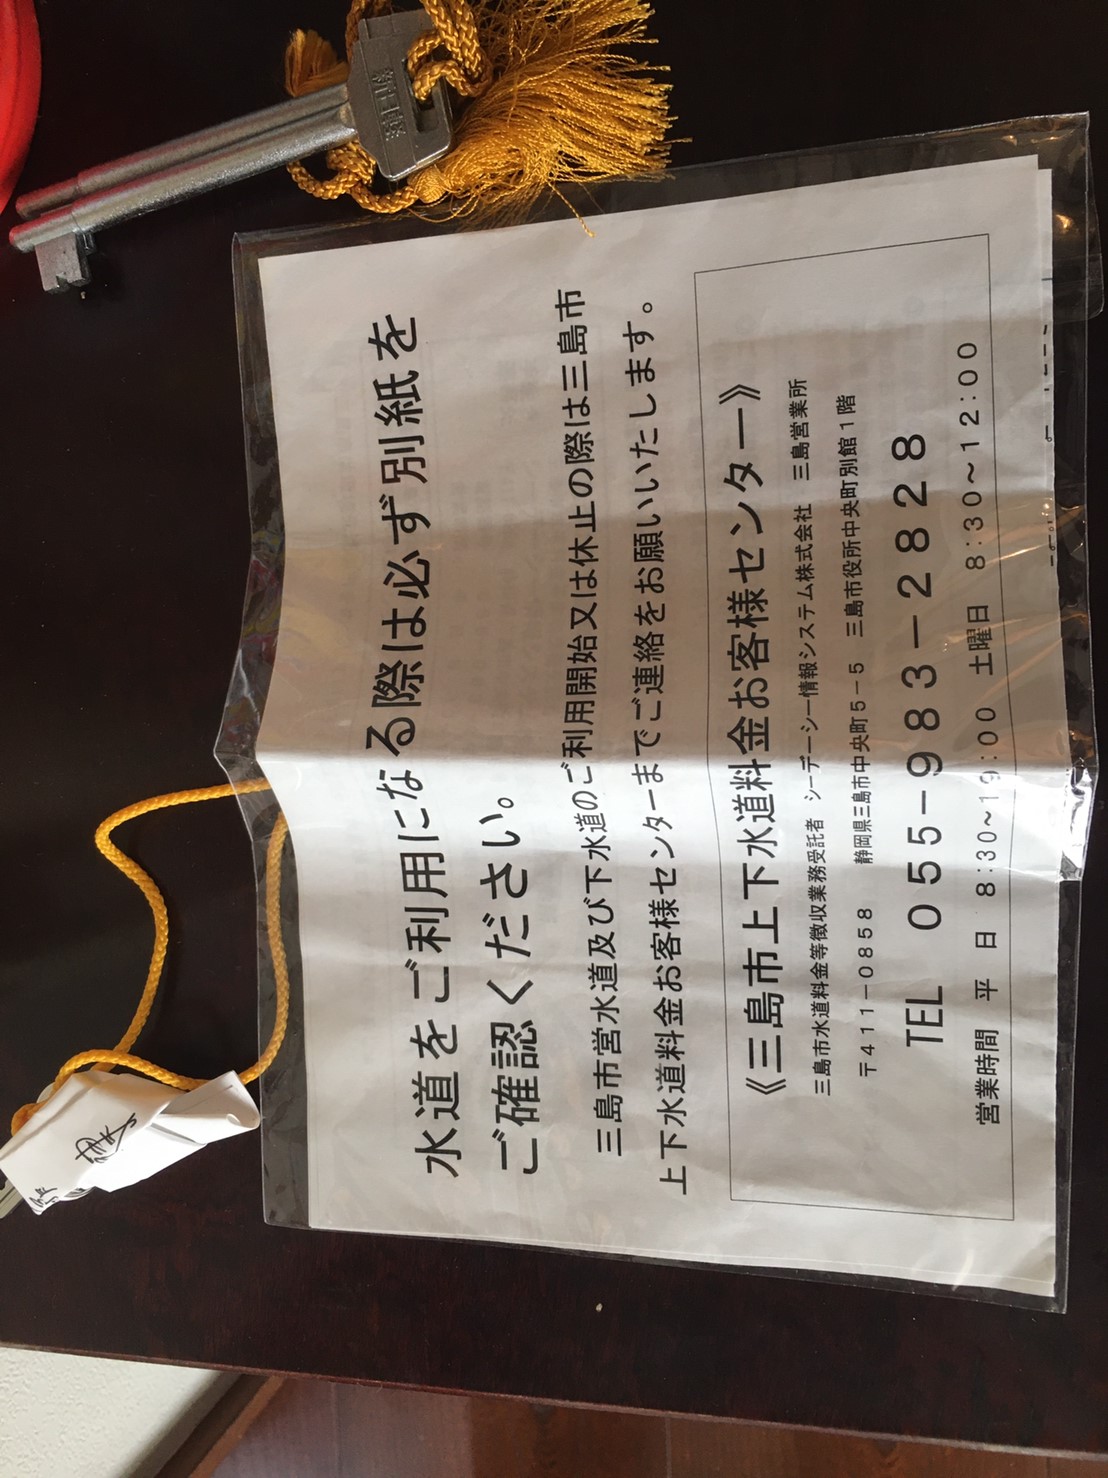 水道をご利用になる際は必ず別紙を
ご確認ください。
三島市営水道及び下水道のご利用開始又は休止の際は三島市
上下水道料金お客様センターまでご連絡をお願いいたします。
《三島市上下水道料金お客様センター》
三島市水道料金等徴収業務受託者 シーデーシー情報システム株式会社 三島営業所
〒411－0858 静岡県三島市中央町5－5 三島市役所中央町別館1階
TEL 055－983－2828
営業時間 平 日 8:30～19:00 土曜日 8:30～12:00